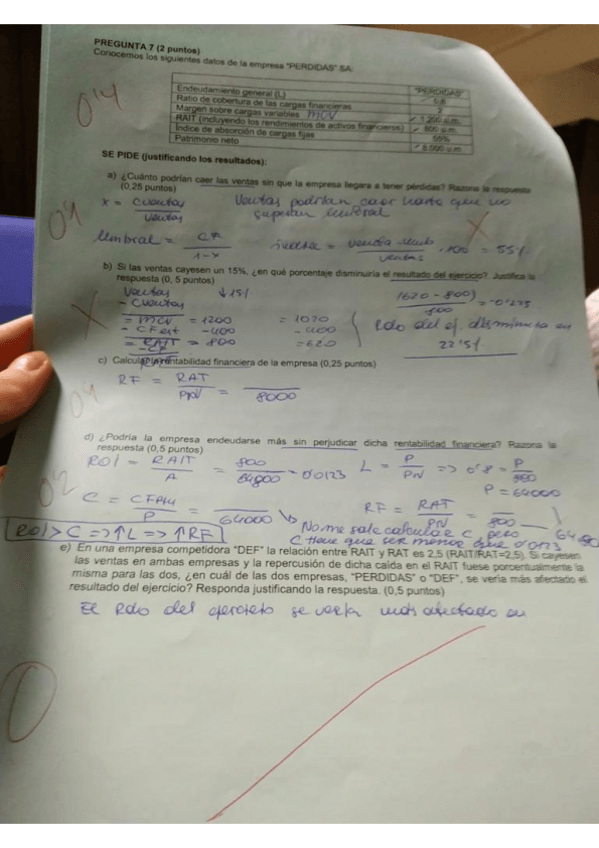 PREGUNTA 7 (2 puntos)
Conocemos los siguientes datos de la empresa "PERDIDAS" SA:
"PERDIDAS"
Endeudamiento general (L) 0,8
Ratio de cobertura de las cargas financieras 2
Margen sobre cargas variables MCV 1.200 u.m.
RAIT (incluyendo los rendimientos de activos financieros) 800 u.m.
Índice de absorción de cargas fijas 55%
Patrimonio neto 8.000 u.m.
0'4
SE PIDE (justificando los resultados):
a) ¿Cuánto podrían caer las ventas sin que la empresa llegara a tener pérdidas? Razone la respuesta
(0,25 puntos)
x = Cventas / Ventas
Ventas podrían caer hasta que no
superan umbral
Umbral = CF / 1-x
ventas · 100 = 55%
b) Si las ventas cayesen un 15%, ¿en qué porcentaje disminuiría el resultado del ejercicio?. Justifica la
respuesta (0, 5 puntos)
Ventas ↓15%
- Cventas
= MCV = 1200 = 1020
- CFext -400 -400
= RAIT = 800 = 620
- CF
(620 - 800) / 800 = -0'225
Rdo del ej. disminuirá en
22'5%
c) Calcula la rentabilidad financiera de la empresa (0,25 puntos)
RF = RAT / PN = / 8000
d) ¿Podría la empresa endeudarse más sin perjudicar dicha rentabilidad financiera? Razona la
respuesta (0,5 puntos)
ROI = RAIT / A = 800 / 64800 = 0'0123
L = P / PN => 0'8 = P / 800
P = 64000
C = CFfin / P = / 64000
RF = RAT / PN = / 800
ROI > C => ↑L => ↑RF
No me sale calcular C pero
C tiene que ser menos que 0'0123
e) En una empresa competidora "DEF" la relación entre RAIT y RAT es 2,5 (RAIT/RAT=2,5). Si cayesen
las ventas en ambas empresas y la repercusión de dicha caída en el RAIT fuese porcentualmente la
misma para las dos, ¿en cuál de las dos empresas, "PERDIDAS" o "DEF", se vería más afectado el
resultado del ejercicio? Responda justificando la respuesta. (0,5 puntos)
El Rdo del ejercicio se vería más afectado en
0